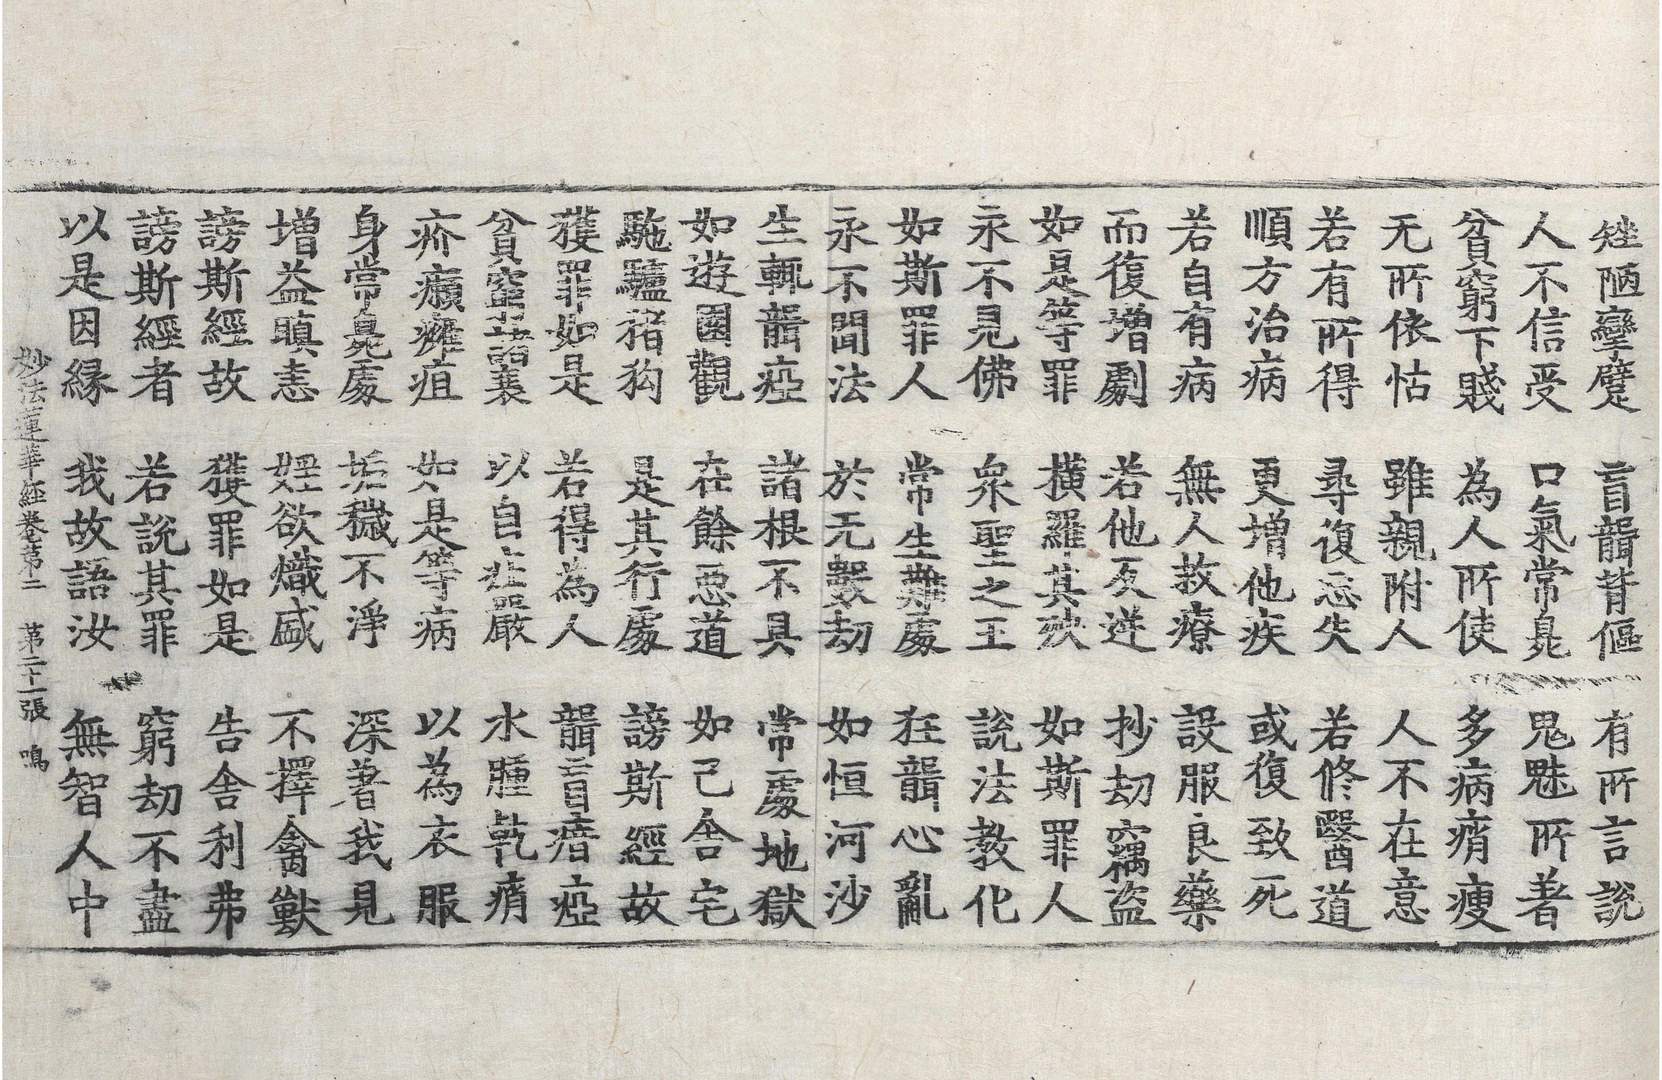 矬陋攣躄 盲聾背傴 有所言說
人不信受 口氣常臰 鬼魅所著
貧窮下賤 為人所使 多病痟瘦
无所依怙 雖親附人 人不在意
若有所得 尋復忘失 若修醫道
順方治病 更增他疾 或復致死
若自有病 無人救療 設服良藥
而復增劇 若他反逆 抄劫竊盜
如是等罪 橫羅其殃 如斯罪人
永不見佛 衆聖之王 說法教化
如斯罪人 常生難處 狂聾心亂
永不聞法 於无數劫 如恒河沙
生輒聾瘂 諸根不具 常處地獄
如遊園觀 在餘惡道 如己舍宅
駞驢猪狗 是其行處 謗斯經故
獲罪如是 若得為人 聾盲瘖瘂
貧窮諸衰 以自莊嚴 水腫乾痟
疥癩癰疽 如是等病 以為衣服
身常臰處 垢穢不淨 深著我見
增益瞋恚 婬欲熾盛 不擇禽獸
謗斯經故 獲罪如是 告舍利弗
謗斯經者 若說其罪 窮劫不盡
以是因縁 我故語汝 無智人中
妙法蓮華經卷第二 第二十一張 鳴